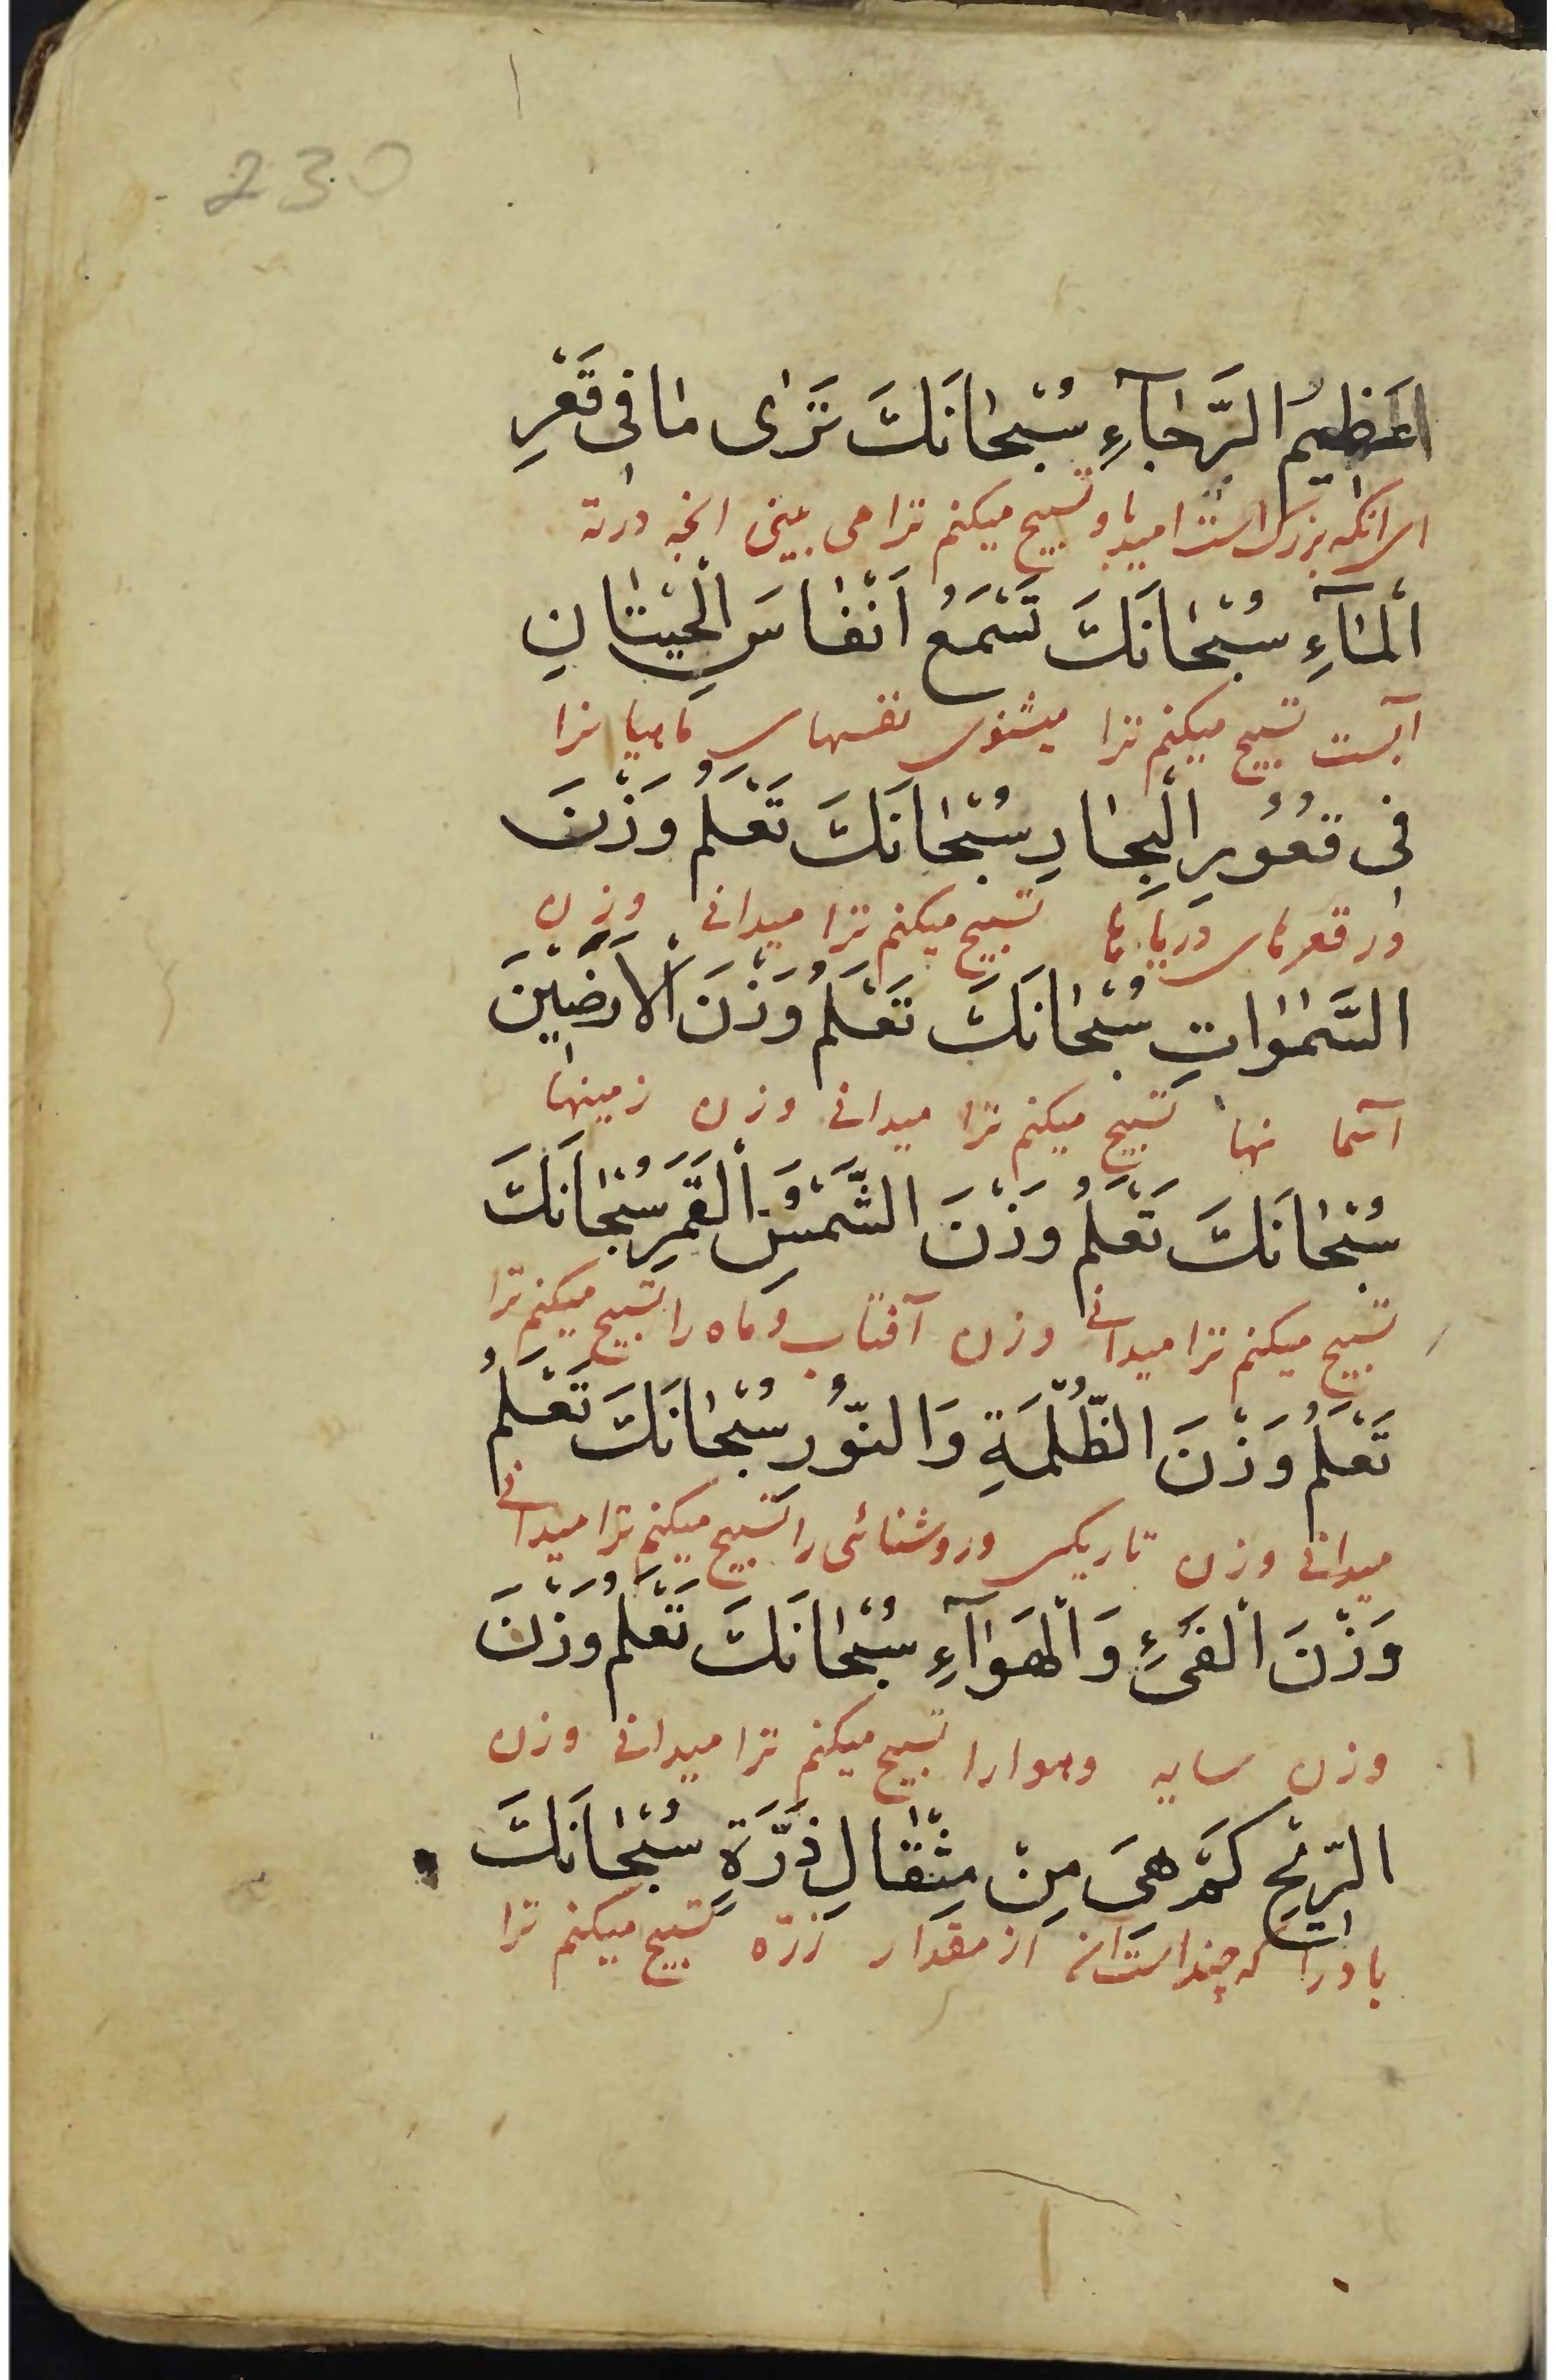 230
العَظِيمُ الرَّجَآءِ سُبْحَانَكَ تَرَى مَا فِى قَعْرِ
ای آنکه بزرگ است امید باو تسبیح میکنم ترا می بینی آنچه در ته
الْمَآءِ سُبْحَانَكَ تَسْمَعُ اَنْفَاسَ الْحِيتَانِ
آبست تسبیح میکنم ترا میشنوی نفسهای ماهیا نرا
فِى قُعُورِ الْبِحَارِ سُبْحَانَكَ تَعْلَمُ وَزْنَ
در قعرهای دریاها تسبیح میکنم ترا میدانی وزن
السَّمٰوَاتِ سُبْحَانَكَ تَعْلَمُ وَزْنَ الْاَرَضِيْنَ
آسما نها تسبیح میکنم ترا میدانی وزن زمینها
سُبْحَانَكَ تَعْلَمُ وَزْنَ الشَّمْسِ وَ الْقَمَرِ سُبْحَانَكَ
تسبیح میکنم ترا میدانی وزن آفتاب و ماه را تسبیح میکنم ترا
تَعْلَمُ وَزْنَ الظُّلْمَةِ وَالنُّورِ سُبْحَانَكَ تَعْلَمُ
میدانی وزن تاریکی و روشنائی را تسبیح میکنم ترا میدانی
وَزْنَ الْفَىْءِ وَالْهَوَآءِ سُبْحَانَكَ تَعْلَمُ وَزْنَ
وزن سایه و هوا را تسبیح میکنم ترا میدانی وزن
الرِّيْحِ كَمْ هِىَ مِنْ مِثْقَالِ ذَرَّةٍ سُبْحَانَكَ
باد را که چند است آن از مقدار ذرّه تسبیح میکنم ترا